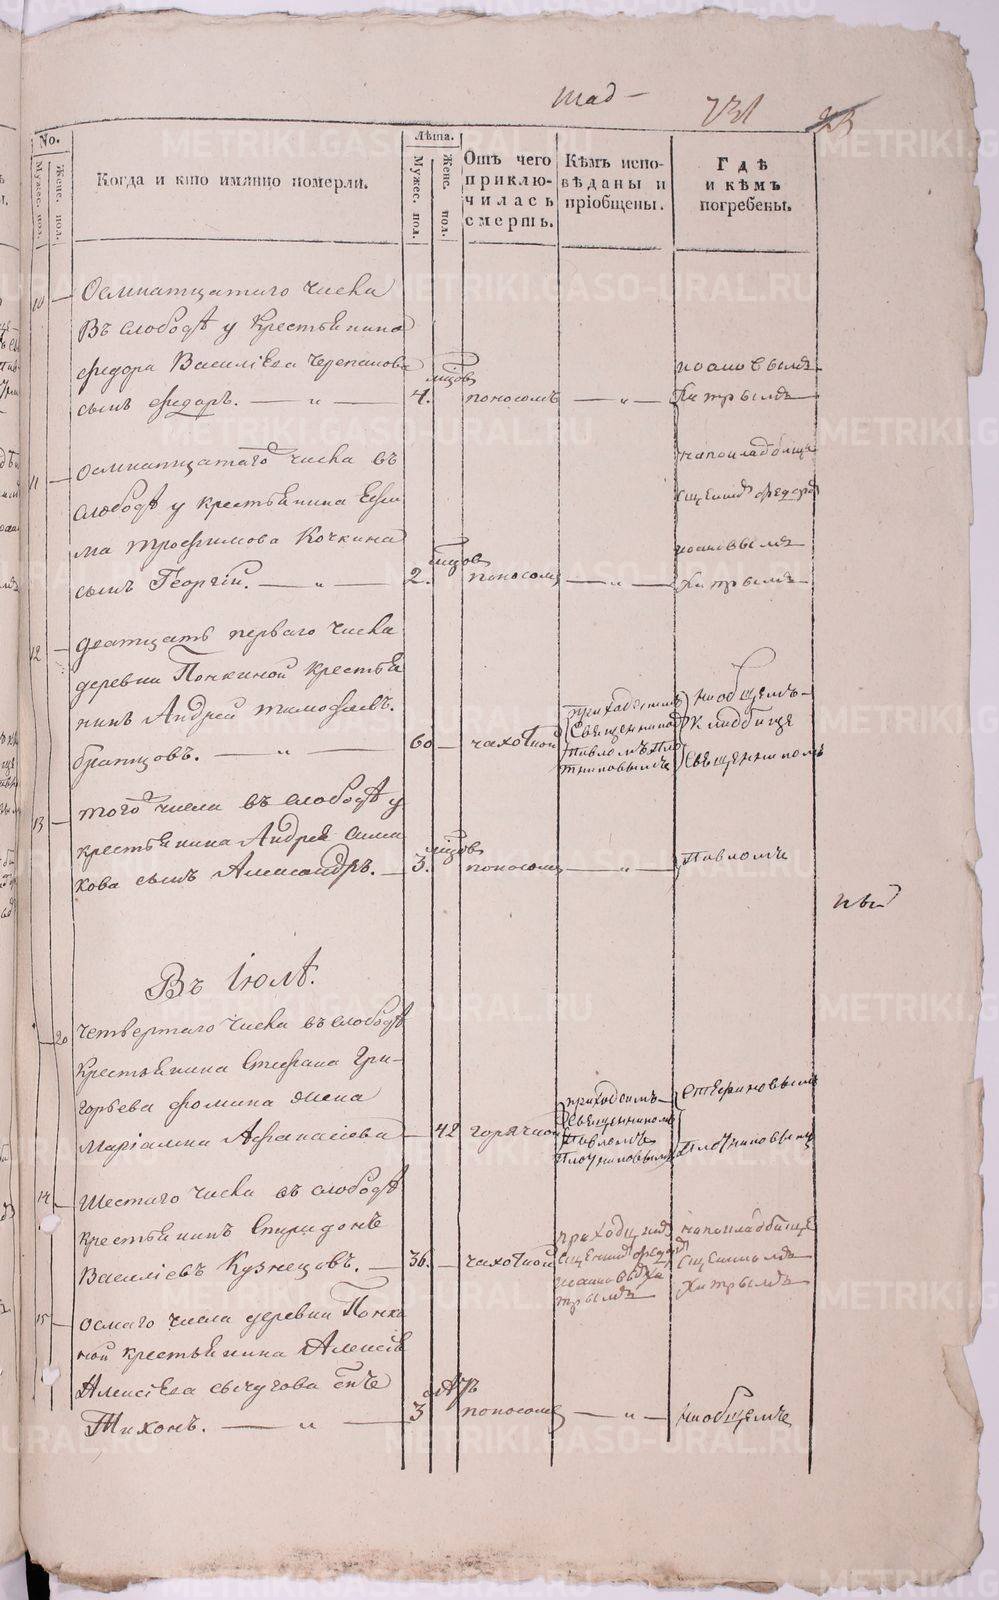 731
No.
Мужес. пол.
Женс. пол.
Когда и кто имянно померли.
Лѣта.
Мужес. пол.
Женс. пол.
Отъ чего приклю-чилась смерть.
Кѣмъ испо-вѣданы и пріобщены.
Гдѣ и кѣмъ погребены.
10
Осмнатцатаго числа
Въ слободѣ у крестьянина
Федора Василіева Черепанова
сынъ Федоръ. — „ —
4. мцов
поносомъ — „ —
Іоанновымъ
Хитрымъ
11
Осмнатцатаго числа въ
слободѣ у крестьянина Ефи
ма Трофимова Кочкина
сынъ Георгій. — „ —
2. мцов
поносомъ — „ —
Федоро
Іоанновымъ
Хитрымъ
12
Дватцать перваго числа
деревни Понкиной крестья
нинъ Андрей Тимофеевъ.
Братцовъ. — „ —
60
чахоткой
приходскимъ
Священником
Павломъ Пло
тниковымъ
на общемъ
кладбище
Священникомъ
13
того числа въ слободѣ у
крестьянина Андрея Сима
кова сынъ Александръ. —
3. мцов
поносомъ — „ —
Павломъ
Въ Іюлѣ.
20
Четвертаго числа въ слободѣ
Крестьянина Стефана Гри-
горьева Фомина жена
Маріамна Афанасіева —
42
горячкой
приходскимъ
Священником
Павломъ
Плотниковымъ
Плотниковымъ
14
Шестаго числа въ слободѣ
крестьянинъ Спиридонъ
Василіевъ Кузнецовъ. —
36.
чахоткой
Іоанновым Хи
трымъ
Хитрымъ
15
осмаго числа деревни Понки
ной крестьянина Алексія
Алексіева Сычугова сынъ
Тихонъ. — „ —
3
поносомъ — „ —
на общемъ